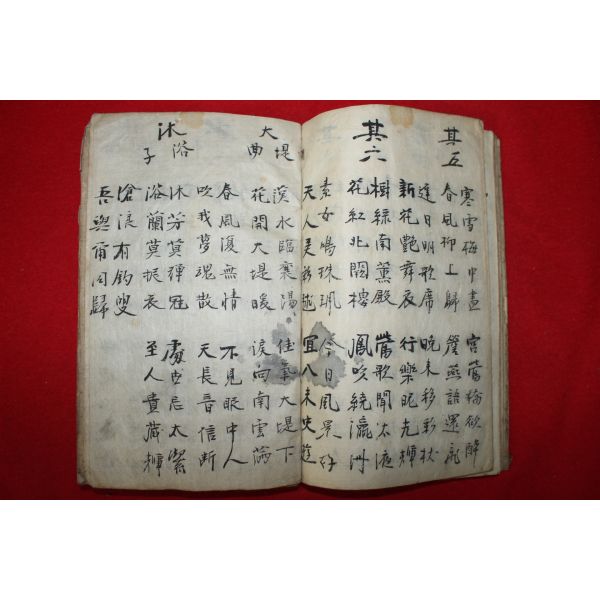 其五
寒雪梅中盡 宮鶯嬌欲醉
春風柳上歸 簷燕語還飛
遲日明歌席 晚來移彩仗
新花艷舞衣 行樂昵光輝
其六
樹綠南薰殿 鶯歌聞太液
花紅北闕樓 鳳吹繞瀛洲
素女鳴珠珮 今日風景好
天人弄彩毬 宜入未央遊
大堤曲
漢水臨襄陽 佳期大堤下
花開大堤暖 淚向南雲滿
春風復無情 不見眼中人
吹我夢魂散 天長音信斷
沐浴子
沐芳莫彈冠 處世忌太潔
浴蘭莫振衣 至人貴藏輝
滄浪有釣叟
吾與爾同歸